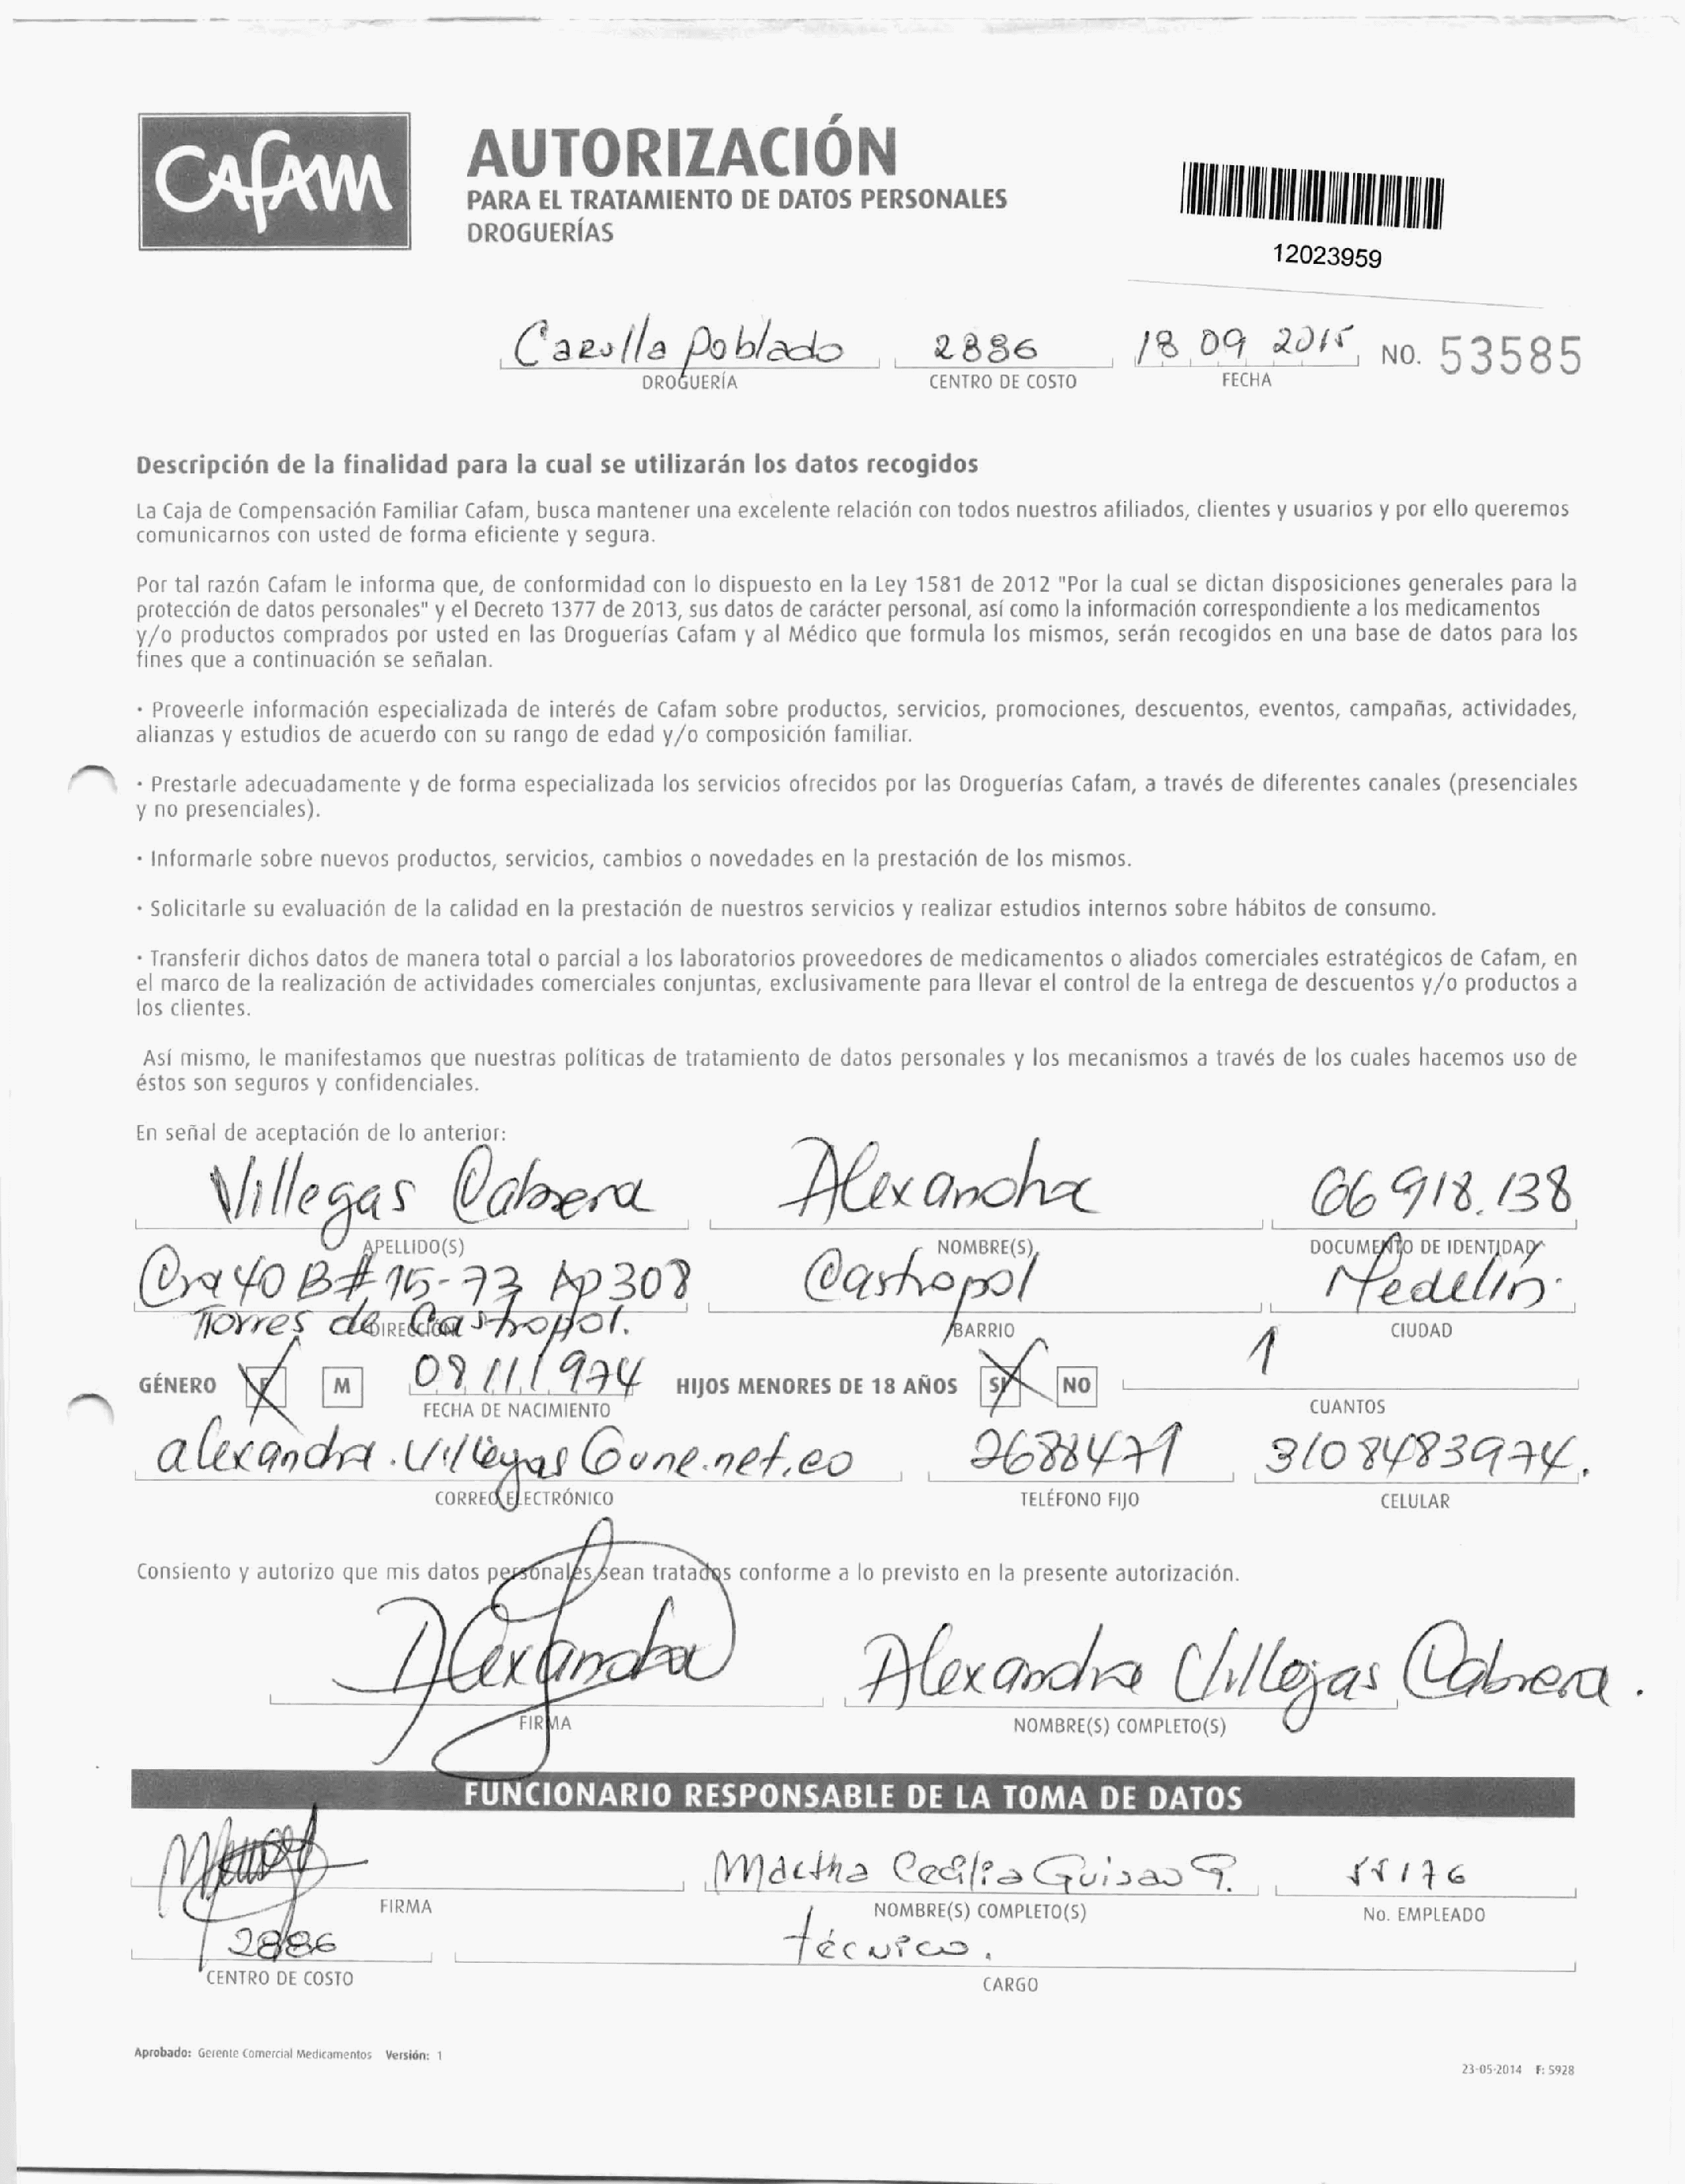 Cafam
AUTORIZACIÓN
PARA EL TRATAMIENTO DE DATOS PERSONALES
DROGUERÍAS
12023959
Carulla Poblado 2886 18 09 2015 NO. 53585
DROGUERÍA CENTRO DE COSTO FECHA
Descripción de la finalidad para la cual se utilizarán los datos recogidos
La Caja de Compensación Familiar Cafam, busca mantener una excelente relación con todos nuestros afiliados, clientes y usuarios y por ello queremos
comunicarnos con usted de forma eficiente y segura.
Por tal razón Cafam le informa que, de conformidad con lo dispuesto en la Ley 1581 de 2012 "Por la cual se dictan disposiciones generales para la
protección de datos personales" y el Decreto 1377 de 2013, sus datos de carácter personal, así como la información correspondiente a los medicamentos
y/o productos comprados por usted en las Droguerías Cafam y al Médico que formula los mismos, serán recogidos en una base de datos para los
fines que a continuación se señalan.
· Proveerle información especializada de interés de Cafam sobre productos, servicios, promociones, descuentos, eventos, campañas, actividades,
alianzas y estudios de acuerdo con su rango de edad y/o composición familiar.
· Prestarle adecuadamente y de forma especializada los servicios ofrecidos por las Droguerías Cafam, a través de diferentes canales (presenciales
y no presenciales).
· Informarle sobre nuevos productos, servicios, cambios o novedades en la prestación de los mismos.
· Solicitarle su evaluación de la calidad en la prestación de nuestros servicios y realizar estudios internos sobre hábitos de consumo.
· Transferir dichos datos de manera total o parcial a los laboratorios proveedores de medicamentos o aliados comerciales estratégicos de Cafam, en
el marco de la realización de actividades comerciales conjuntas, exclusivamente para llevar el control de la entrega de descuentos y/o productos a
los clientes.
Así mismo, le manifestamos que nuestras políticas de tratamiento de datos personales y los mecanismos a través de los cuales hacemos uso de
éstos son seguros y confidenciales.
En señal de aceptación de lo anterior:
Villegas Cabrera Alexandra 66 918.138
APELLIDO(S) NOMBRE(S) DOCUMENTO DE IDENTIDAD
Cra 40 B # 15-73 Ap 308 Castropol Medellín.
Torres de Castropol.
DIRECCIÓN BARRIO CIUDAD
GÉNERO F M 08 11 1974 HIJOS MENORES DE 18 AÑOS SI NO 1
FECHA DE NACIMIENTO CUANTOS
alexandra.villegas@une.net.co 2688471 3108483974.
CORREO ELECTRÓNICO TELÉFONO FIJO CELULAR
Consiento y autorizo que mis datos personales sean tratados conforme a lo previsto en la presente autorización.
Alexandra Alexandra Villegas Cabrera.
FIRMA NOMBRE(S) COMPLETO(S)
FUNCIONARIO RESPONSABLE DE LA TOMA DE DATOS
Martha Cecilia Guisao G. 55176
FIRMA NOMBRE(S) COMPLETO(S) No. EMPLEADO
2886 técnico.
CENTRO DE COSTO CARGO
Aprobado: Gerente Comercial Medicamentos Versión: 1
23-05-2014 F: 5928